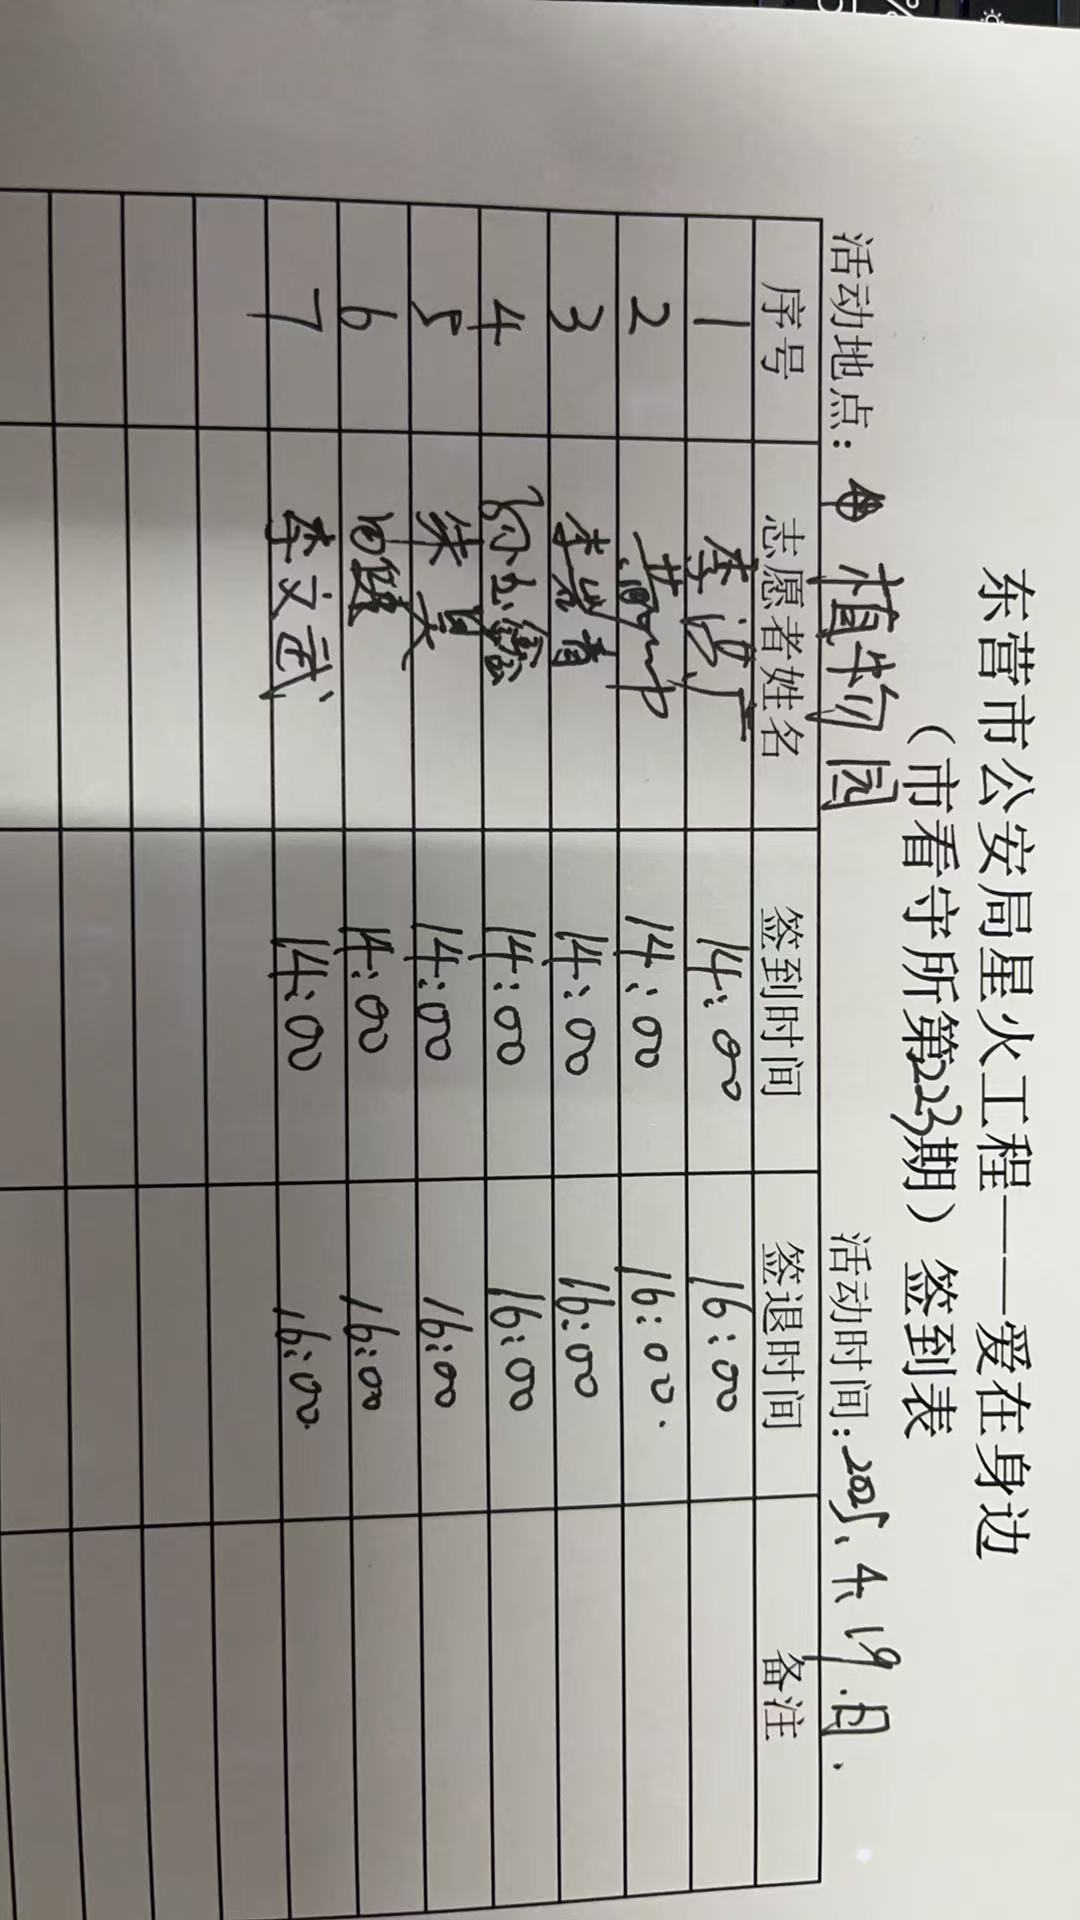 东营市公安局星火工程——爱在身边
（市看守所第223期）签到表
活动地点：植物园 活动时间：2025、4、19.日.
序号 志愿者姓名 签到时间 签退时间 备注
1 李 14:00 16:00
2 黄 14:00 16:00.
3 李岩青 14:00 16:00
4 孙玉鑫 14:00 16:00
5 朱 14:00 16:00
6 田健 14:00 16:00
7 李文武 14:00 16:00